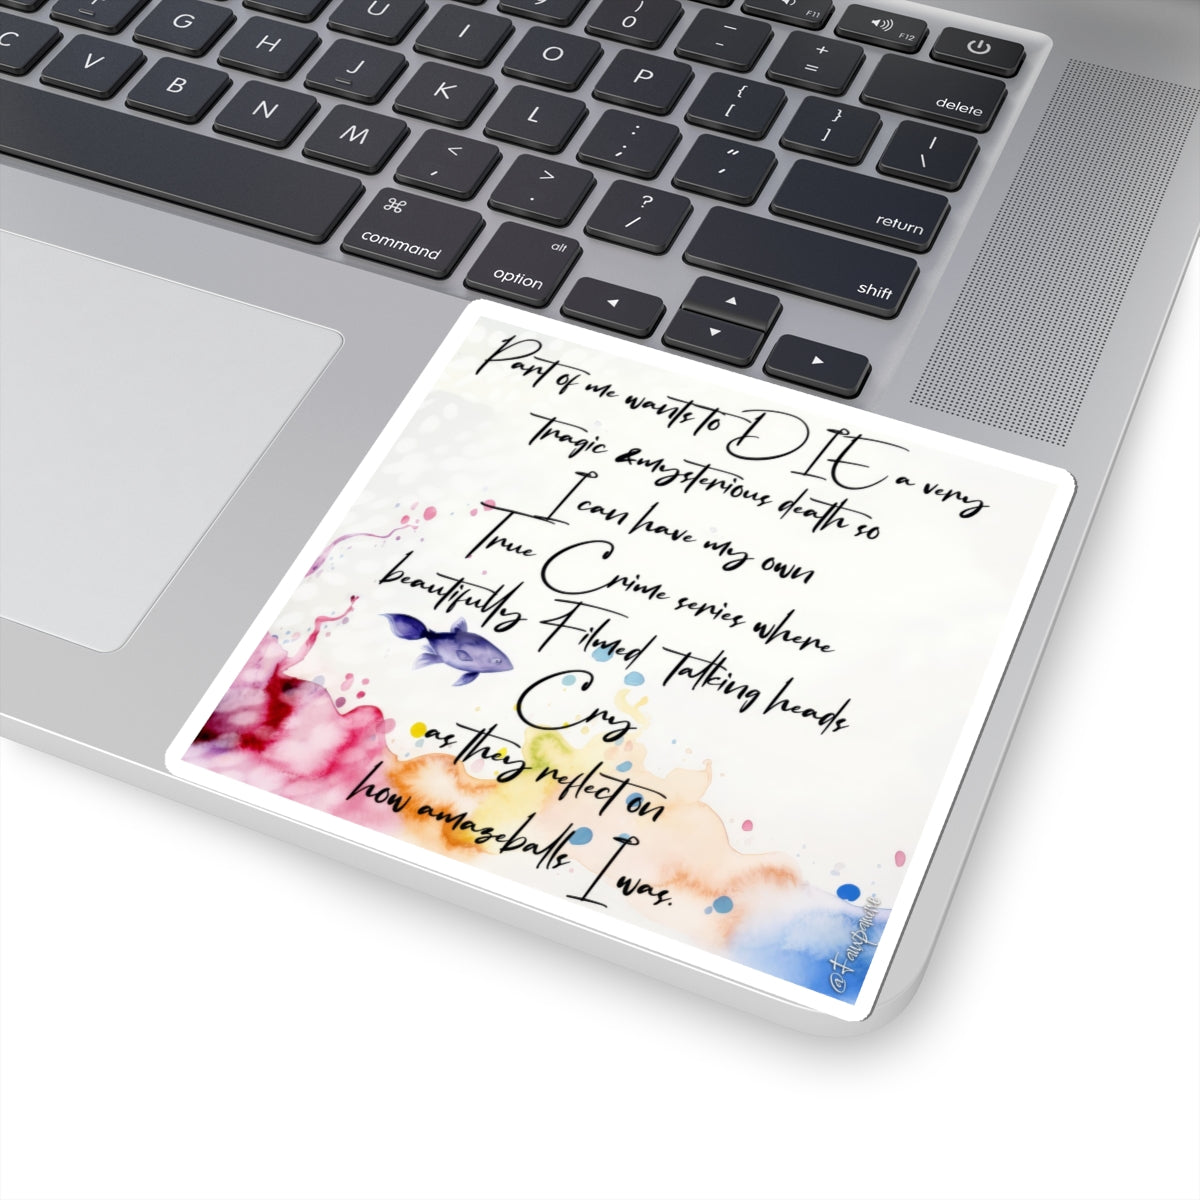 F11
F12
U
)
0
_
-
+
=
delete
C
G
H
I
O
P
{
[
}
]
|
\
V
B
J
K
L
:
;
"
'
return
N
M
<
,
>
.
?
/
shift
⌘
command
alt
option
Part of me wants to DIE a very
tragic &mysterious death so
I can have my own
True Crime series where
beautifully Filmed Talking heads
Cry
as they reflect on
how amazeballs I was.